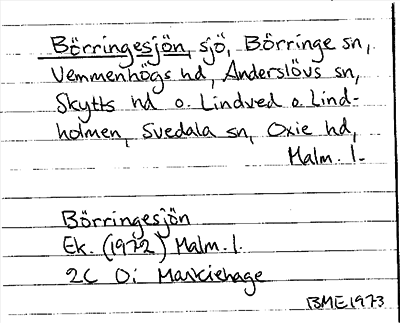 Börringesjön, sjö, Börringe sn,
Vemmenhögs hd, Anderslövs sn,
Skytts hd o. Lindved o. Lind-
holmen, Svedala sn, Oxie hd,
Malm. l.
Börringesjön
Ek. (1972) Malm. l.
2C 0i
BME 1973